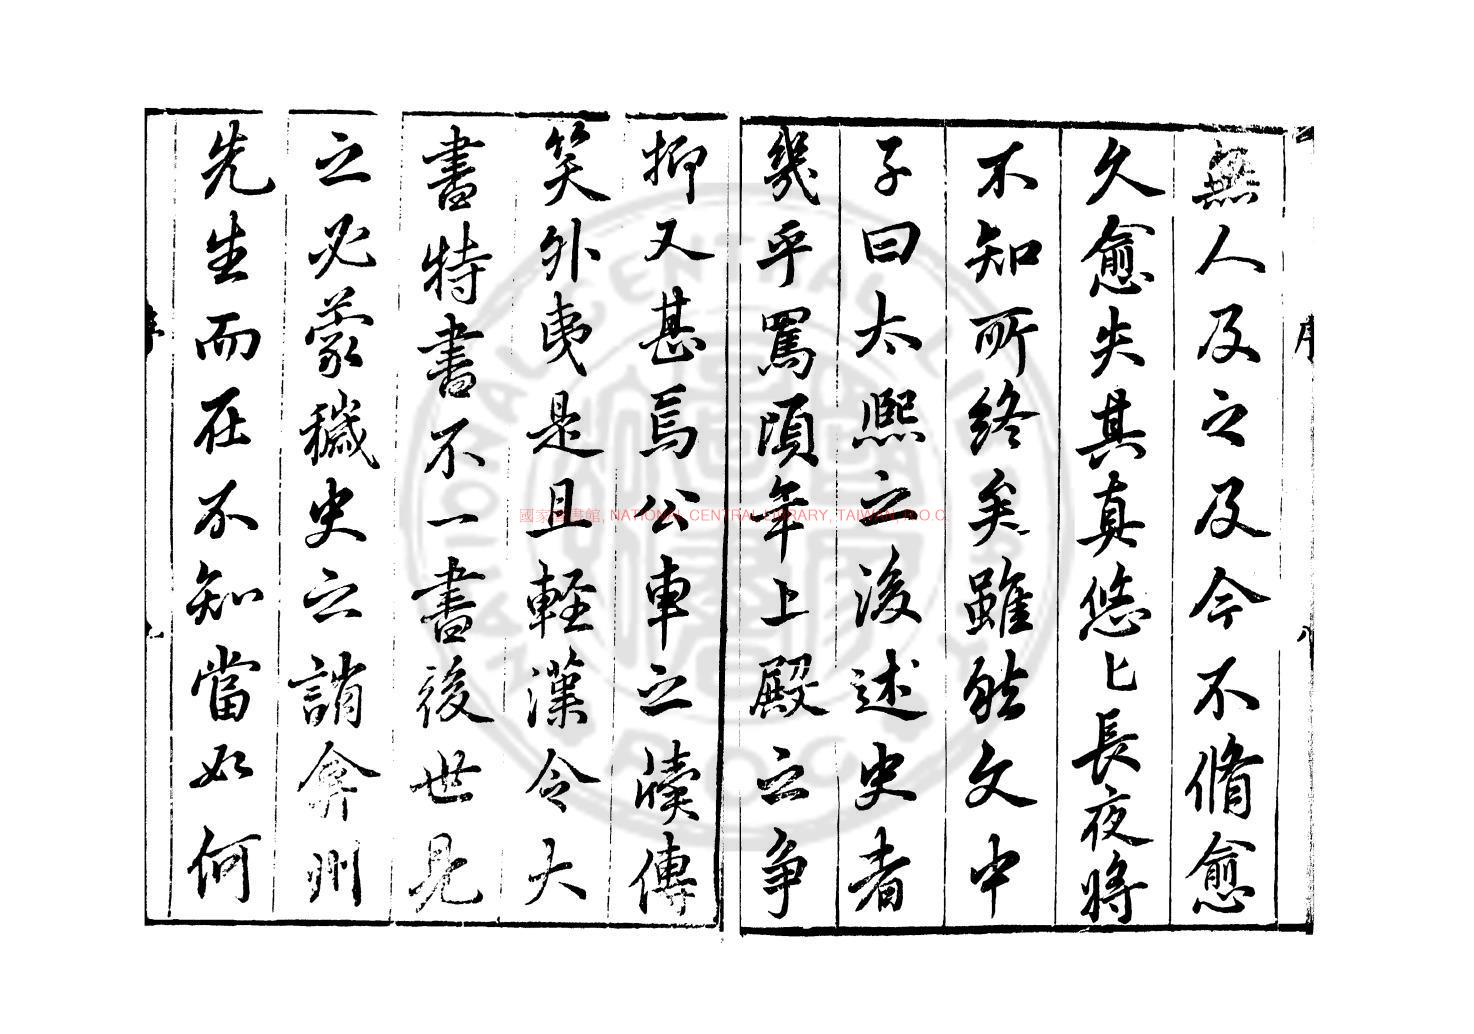 無人及之及今不脩愈
久愈失其真悠匕長夜將
不知所終矣雖然文中
子曰太熙之後述史者
幾乎罵頃年上殿之爭
抑又甚焉公車之牘傳
笑外夷是且輕漢令大
書特書不一書後世見
之必蒙穢史之誚弇州
先生而在不知當如何
序
國家圖書館, NATIONAL CENTRAL LIBRARY, TAIWAN, R.O.C
NATIONAL CENTRAL LIBRARY
TAIWAN R.O.C.